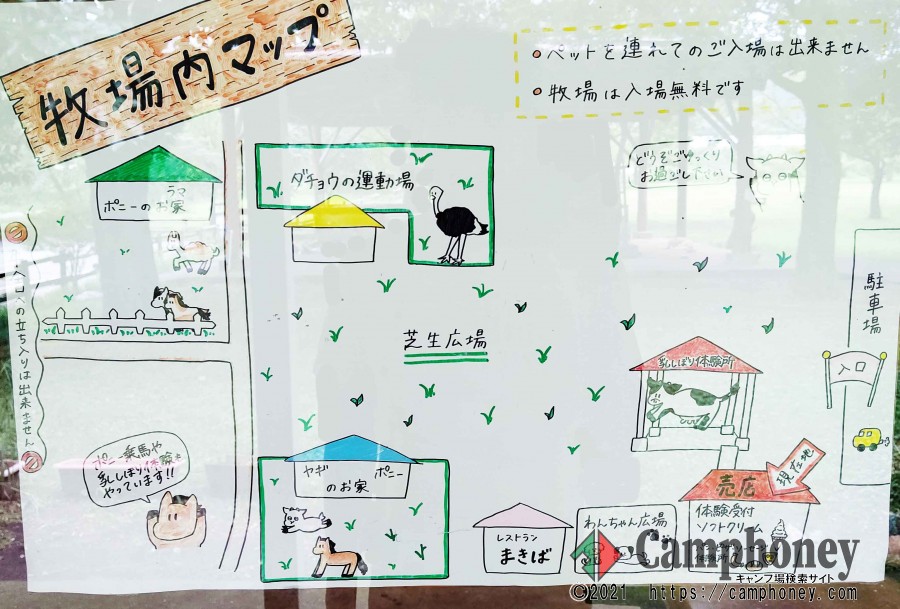 牧場内マップ
●ペットを連れてのご入場は出来ません
●牧場は入場無料です
どうぞごゆっくり
お過ごし下さい
ラマ
ポニーのお家
ダチョウの運動場
駐車場
入口
芝生広場
への立ち入りは出来ません
乳しぼり体験所
ポニー乗馬や
乳しぼり体験も
やっています!!
ヤギ ポニー
のお家
レストラン
まきば
わんちゃん広場
現在地
売店
体験受付
ソフトクリーム
Camphoney
キャンプ場検索サイト
©2021 https://camphoney.com